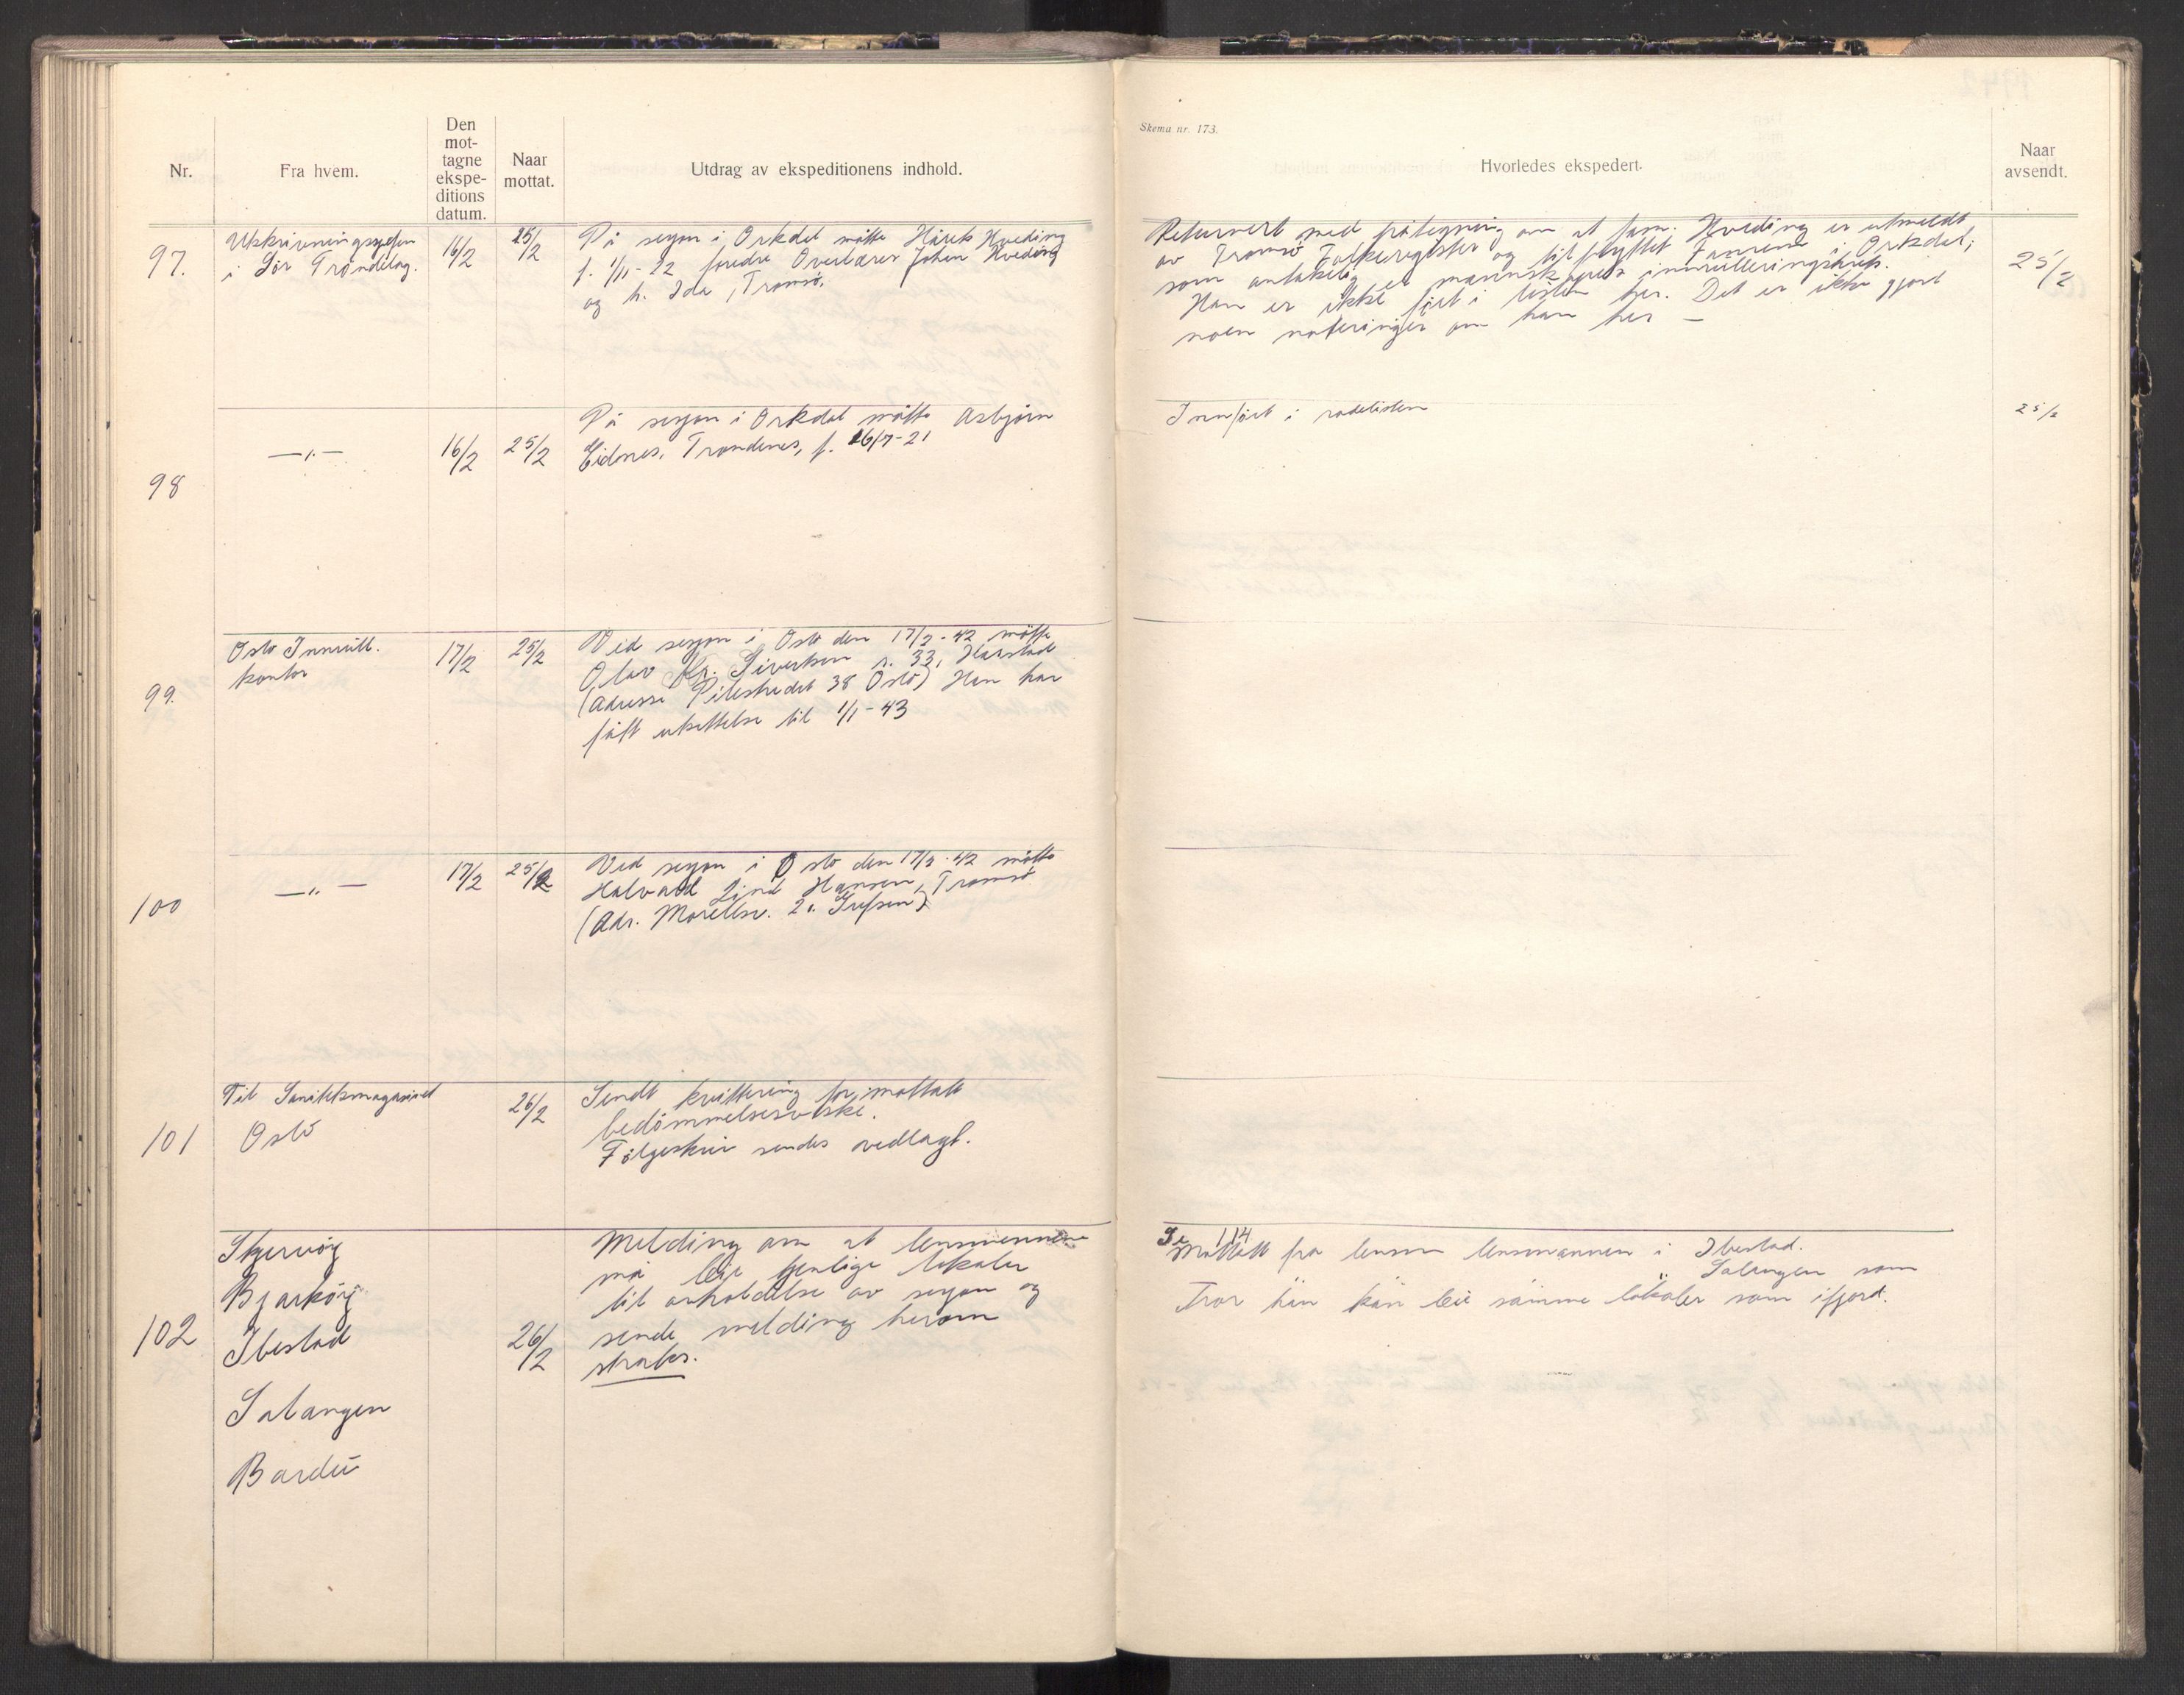 Skema nr. 173.
Nr.
Fra hvem.
Den
mot-
tagne
ekspe-
ditions
datum.
Naar
mottat.
Utdrag av ekspeditionens indhold.
Hvorledes ekspedert.
Naar
avsendt.
97.
Utskrivningssjefen
i Sør Trøndelag.
16/2
25/2
På sesjon i Orkdal møtte Hårek Hveding
f. 1/11-22 foredre Overlærer Johan Hveding
og h. Ida, Tromsø.
Returnert med påtegning om at fam. Hveding er utmeldt
av Tromsø Folkeregister og tilflyttet Fannrem i Orkdal,
som antakelig er mannskapets innrulleringskrets.
Han er ikke ført i listen her. Det er ikke gjort
noen noteringer om han her —
25/2
98
—"—
16/2
25/2
På sesjon i Orkdal møtte Asbjørn
Eidnes, Trondenes, f. 26/7-21
Innført i rodelisten
25/2
99.
Oslo Innrull.
kontor
17/2
25/2
Ved sesjon i Oslo den 17/2-42 møtte
Olav Kr. Sivertsen r. 33, Harstad
(Adresse Pilestredet 38 Oslo) Han har
fått utsettelse til 1/1-43
100
—"—
17/2
25/2
Ved sesjon i Oslo den 17/2-42 møtte
Halvard Lind Hansen, Tromsø
(Adr. Morellsv. 21 Grefsen)
101
Til Sanitetsmagasinet
Oslo
26/2
Sendt kvittering for mottatt
bedømmelsesveske.
Følgeskriv sendes vedlagt.
102
Skjervøy
Bjarkøy
Ibestad
Salangen
Bardu
26/2
Melding om at lensmennene
må leie tjenlige lokaler
til avholdelse av sesjon og
sende melding herom
straks.
Se 114
Mottatt fra lensm lensmannen i Ibestad.
" Salangen som
Tror han kan leie samme lokaler som ifjord.